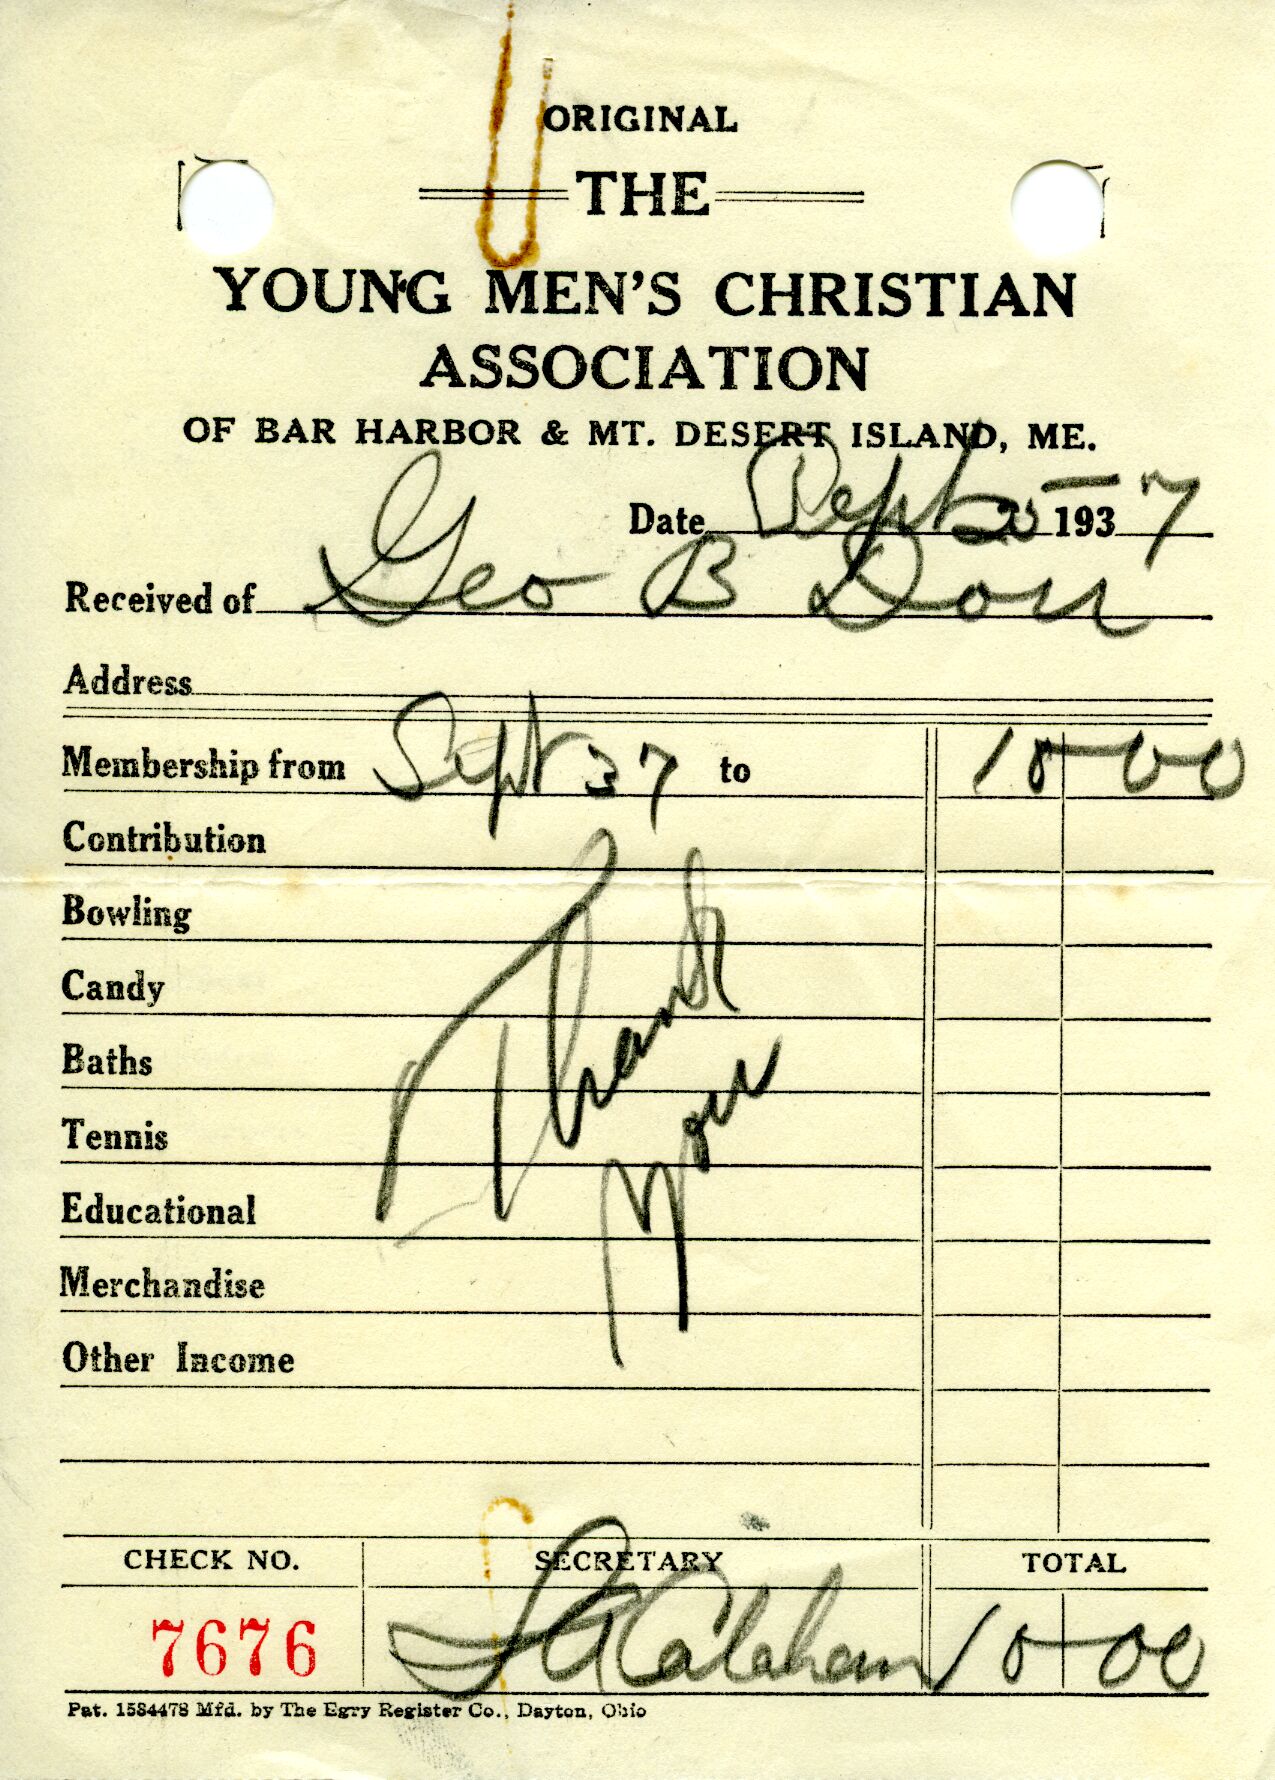 ORIGINAL
THE
YOUNG MEN'S CHRISTIAN
ASSOCIATION
OF BAR HARBOR & MT. DESERT ISLAND, ME.
Date Sept 193 7
Received of Geo B Dorr
Address
Membership from Sept 37 to 10 00
Contribution
Bowling
Candy
Baths
Tennis
Educational
Merchandise
Other Income
Thank
You
CHECK NO. SECRETARY TOTAL
7676 Calahan 10 00
Pat. 1584478 Mfd. by The Egry Register Co., Dayton, Ohio